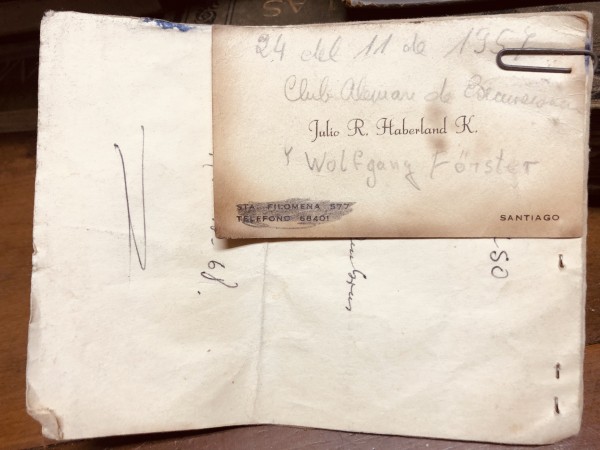 24 del 11 de
Club Aleman de
Julio R. Haberland K.
y Wolfgang Förster
STA. FILOMENA 577
TELEFONO 68401
SANTIAGO
68.